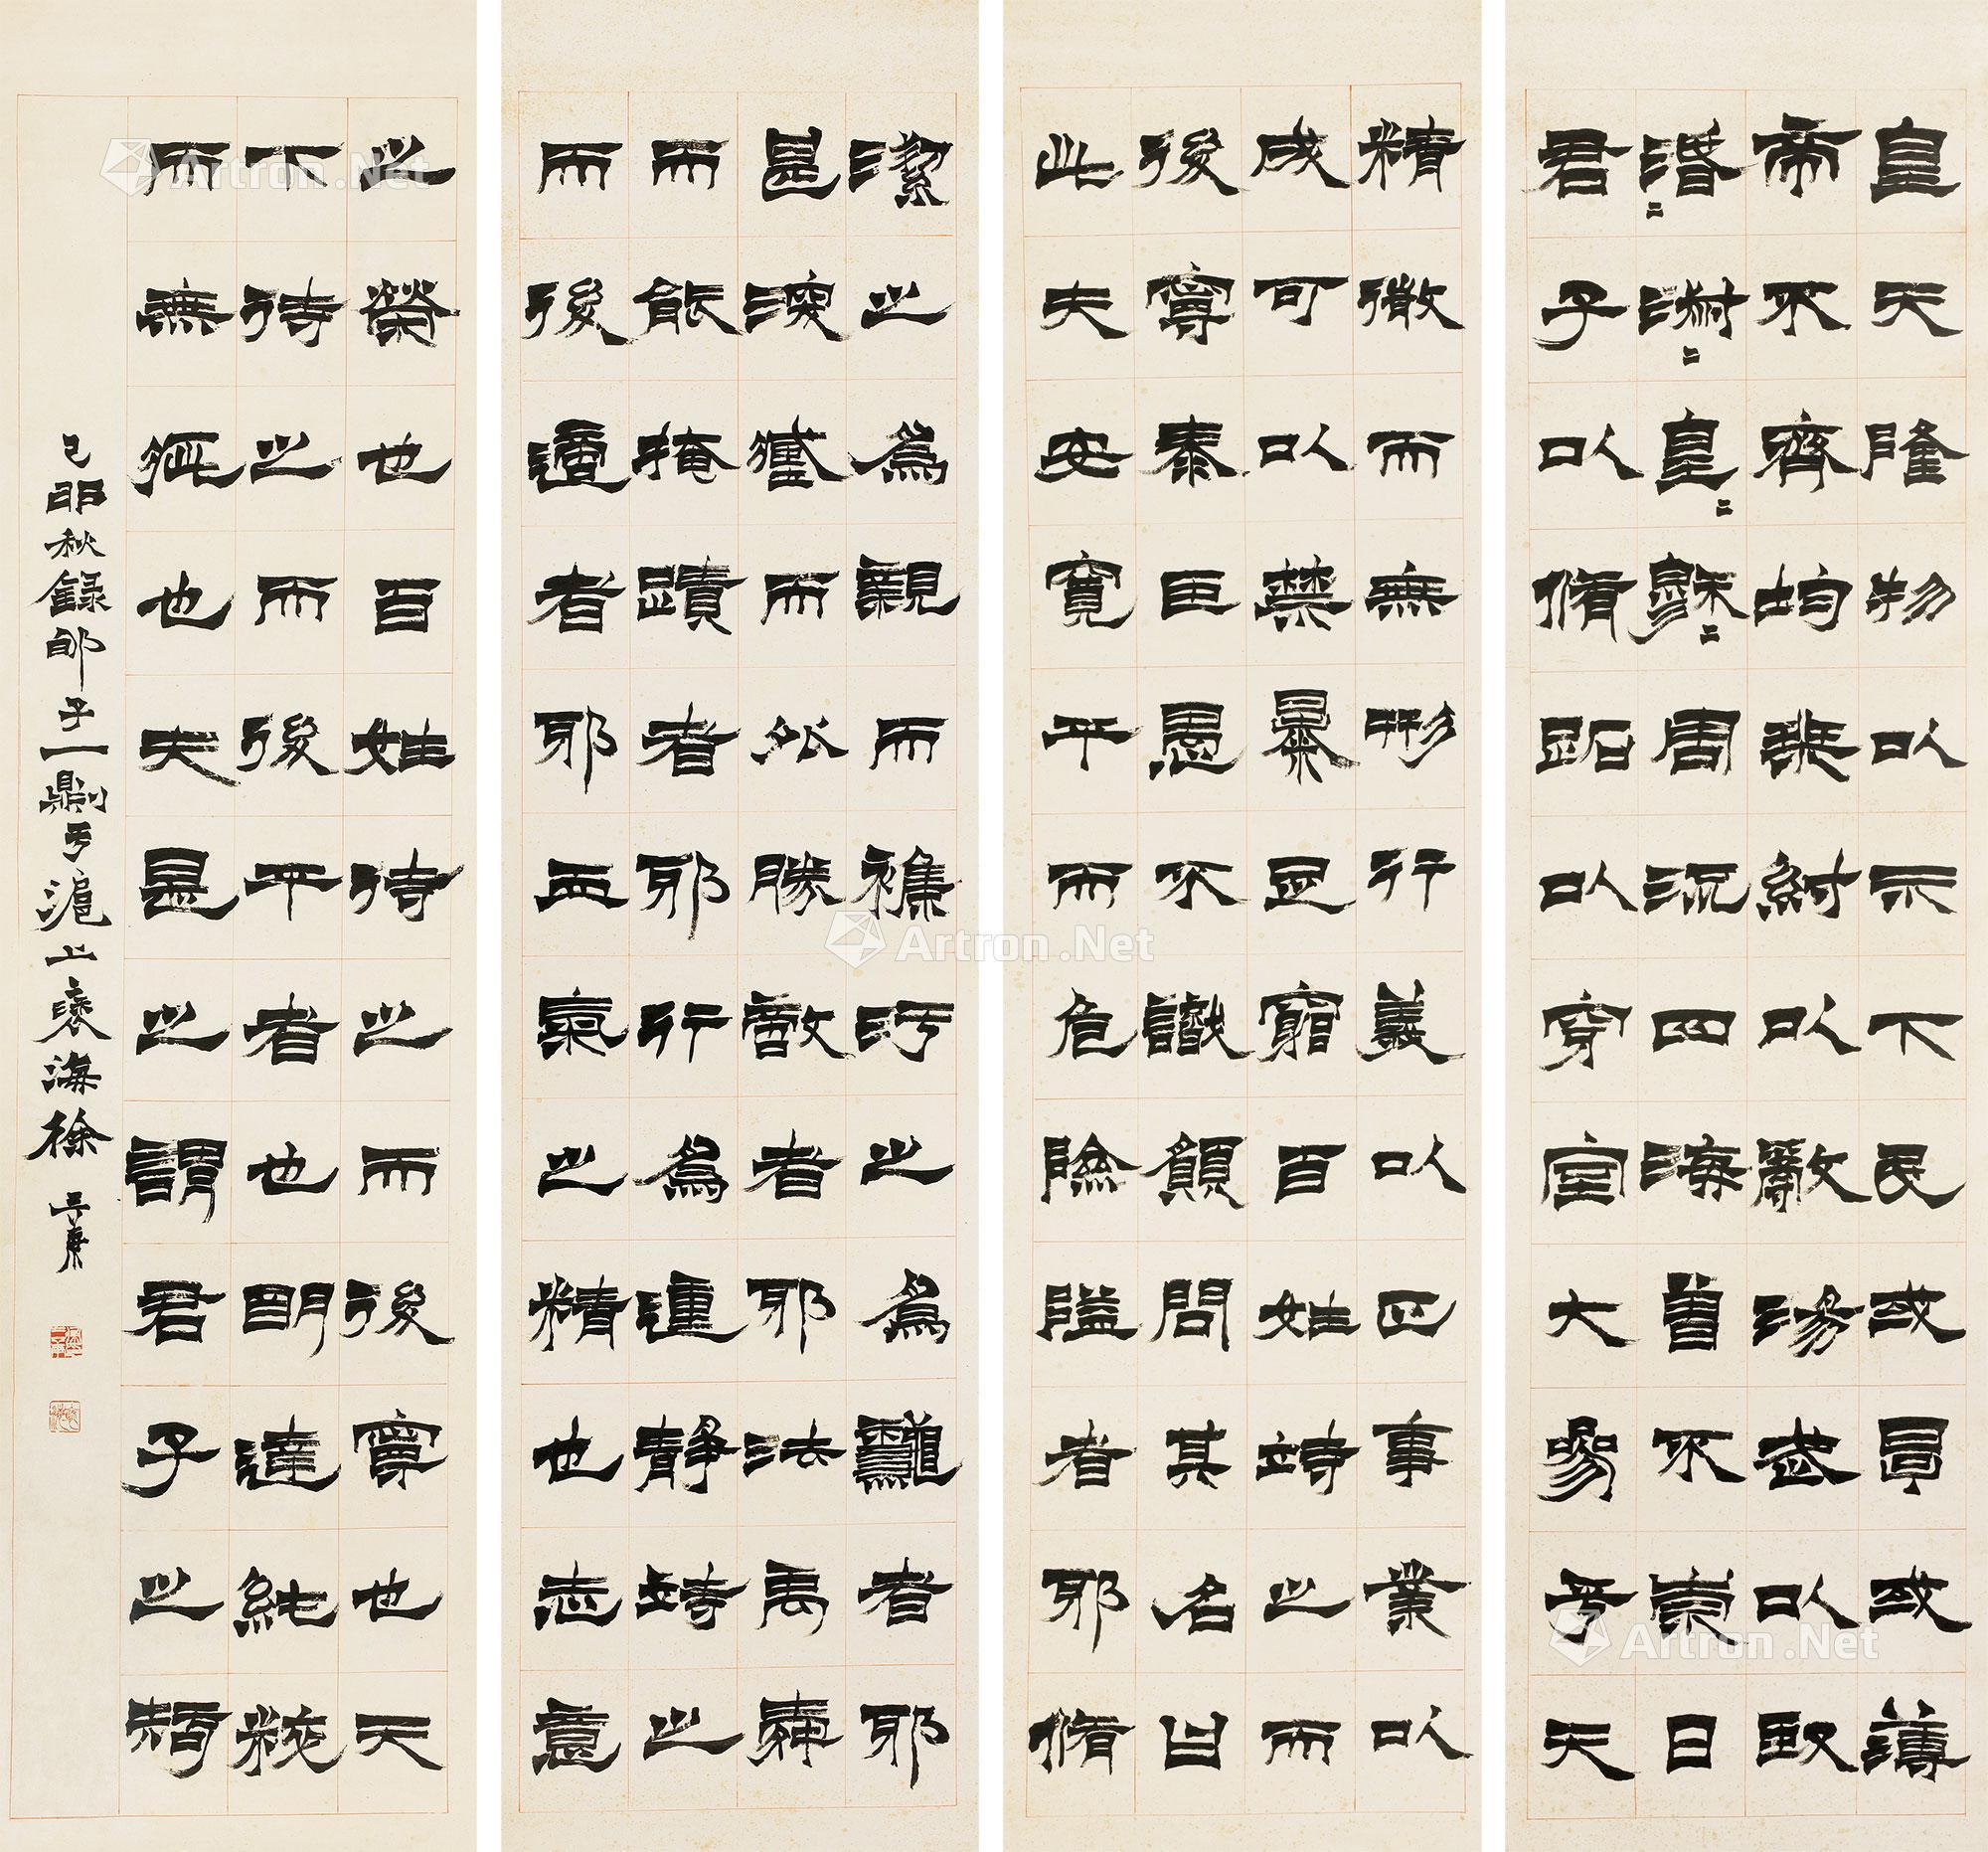 皇天隆物以示下民或厚或薄
帝不齊均桀紂以亂湯武以賢
湣〻淑〻皇〻穆〻周流四海曾不崇日
君子以脩跖以穿室大參乎天
精微而無形行義以正事業以
成可以禁暴足窮百姓待之而
後寧泰臣愚不識願問其名曰
此夫安寬平而危險隘者邪脩
潔之為親而雜汙之為者邪
甚深藏而外勝敵者邪法禹舜
而能掩蹟者邪行為動靜待之
而後適者邪血氣之精也志意
之榮也百姓待之而後寧也天
下待之而後平也明達純粹
而無疵也夫是之謂君子之知
己卯秋錄郇子一則于滬上海徐
Artron.Net
Artron.Net
Artron.Net